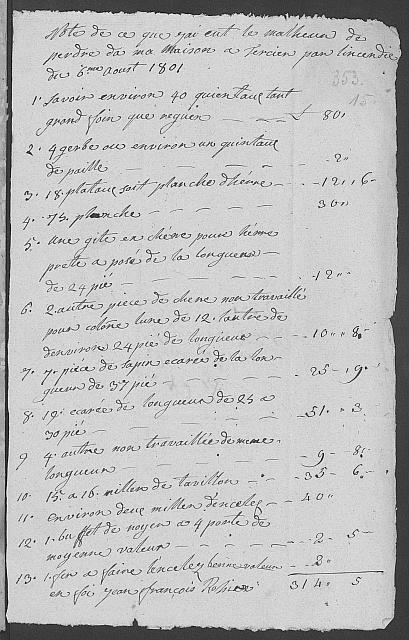 Note de ce que j'ai eut le malheur de
perdre da ma Maison a Fercien par l'incendie
du 6me aoust 1801
353
15
1. Savoir environ 40 quientaux tant
grand foin que reguen — £ 80,
2. 4 gerbe ou environ un quintaux
de paille — 2,,
3. 18. plataux soit planche d'hérre — 12,, 6.
4. 75. planche — 30,,
5. une gite en chéne pour hérre
prete a posé de la longueur
de 24 pié — 12,,
6. 2. autre piece de chene non travaillé
pour colone lune de 12. lautre de
denviron 24 pié de longueur — 10,, 8.
7. 7. piéce de sapin ecarée de la lon-
gueur de 37 pié — 25 - 9.
8. 12. ecarée de longueur de 25 a
30 pié — 51. 3
9 4. autre non travaillée de meme
longueur — 9 - 8.
10. 15 a 16. millers de tavillon — 35 - 6.
11. environ deux miller d'encelez — 40,,
12. 1. buffet de noyer a 4 porte de
moyenne valeur — 2 - 5
13. 1. fer a faire lenceley bonne valeur — 2,
en foi jean françois 314. 5